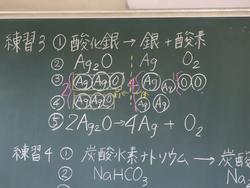 練習3 ① 酸化銀 → 銀 + 酸素
② Ag₂O Ag O₂
③ 2 AgAgO 4 Ag Ag OO
④ AgAgO Ag Ag
⑤ 2Ag₂O → 4Ag + O₂
練習4 ① 炭酸水素ナトリウム → 炭酸
② NaHCO₃ Na